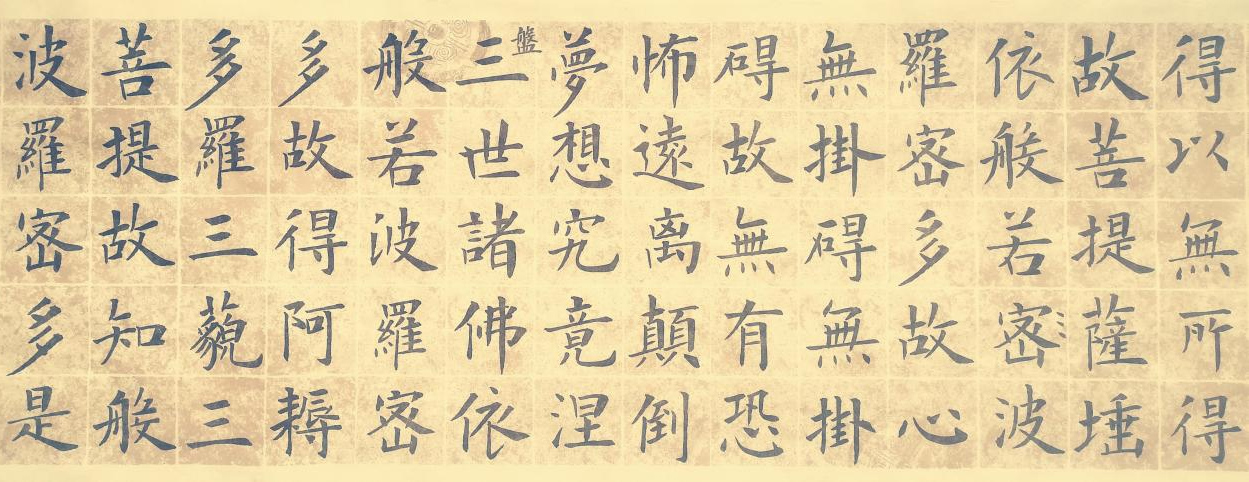 得以無所得
故菩提薩埵
依般若密波
羅密多故心
無掛碍無掛
碍故無有恐
怖遠离顛倒
夢想究竟涅
盤三世諸佛依
般若波羅密
多故得阿耨
多羅三藐三
菩提故知般
波羅密多是